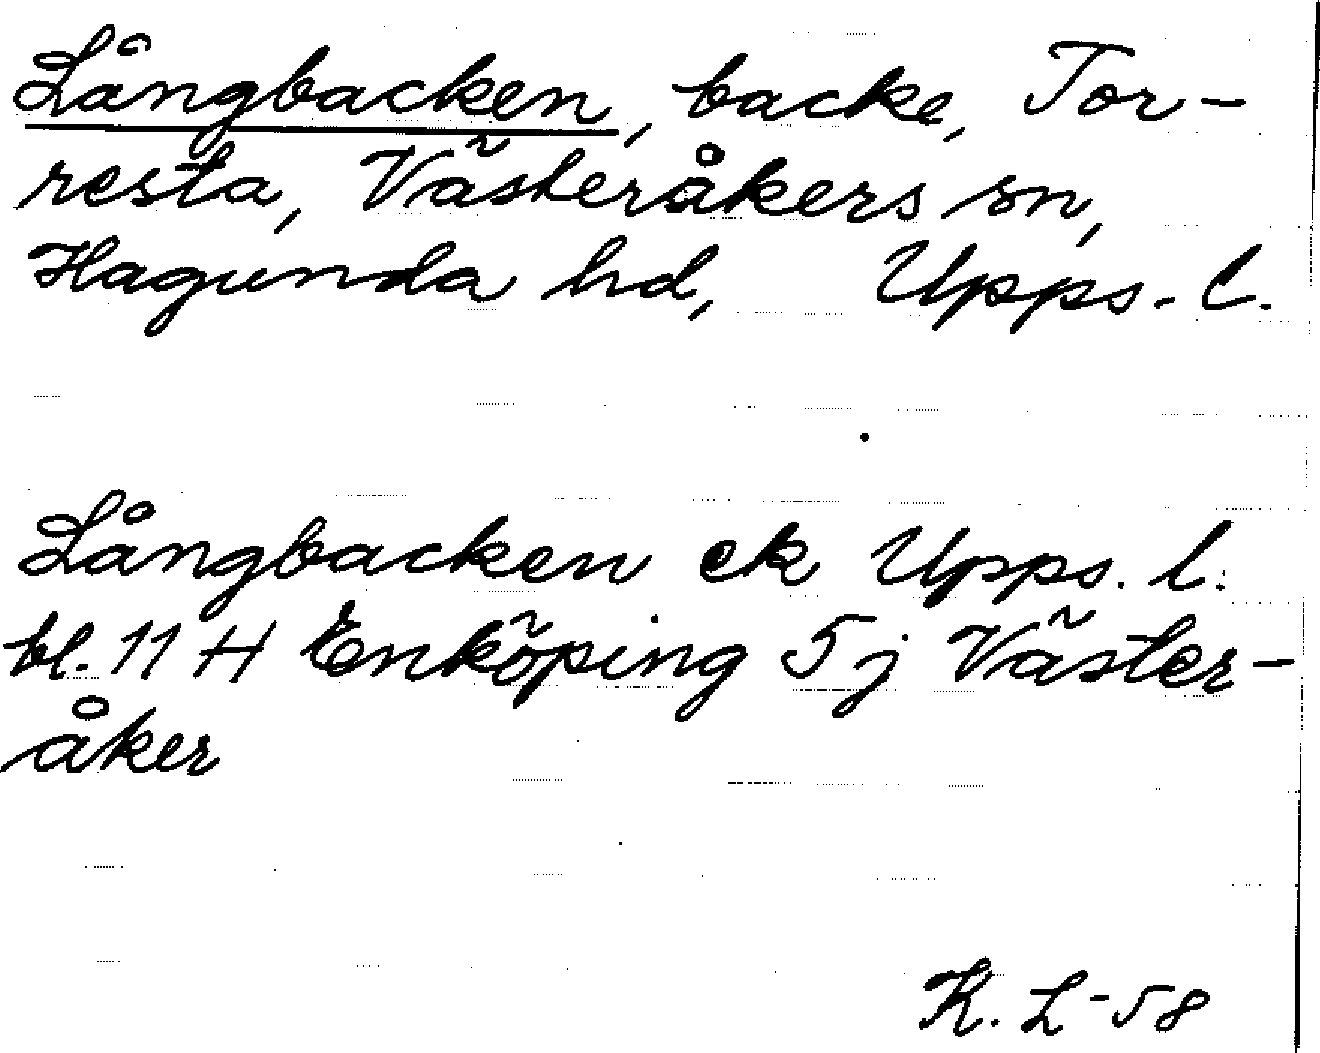 Långbacken, backe, Tor-
resta, Västeråkers sn,
Hagunda hd, Upps. l.
Långbacken ek Upps. l.
bl. 11 H Enköping 5j Väster-
åker
K. L-58